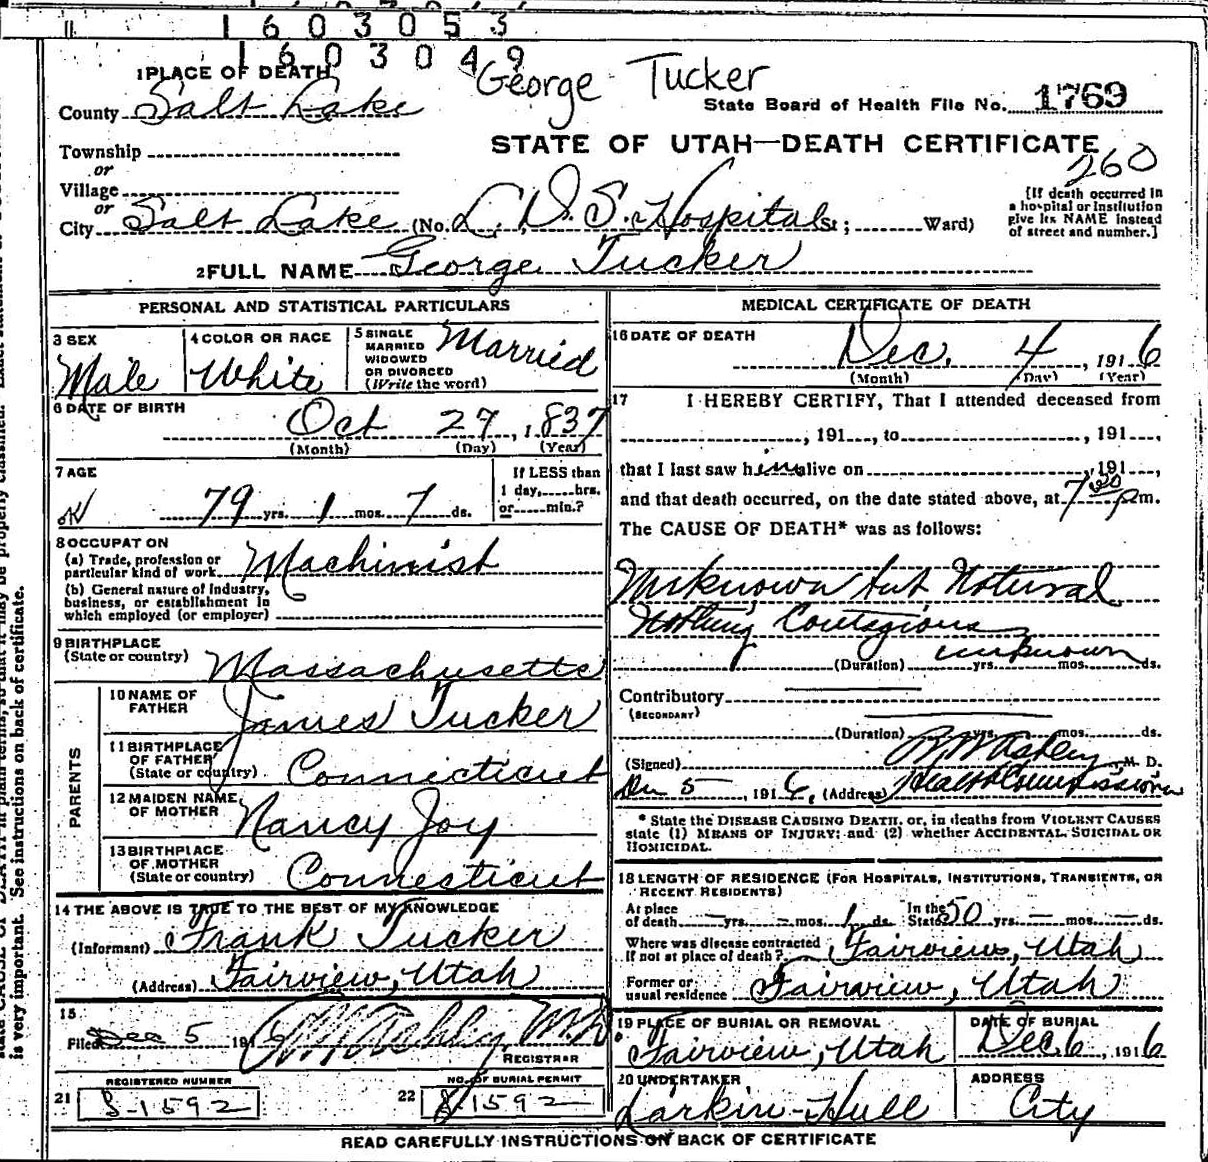 1 6 0 3 0 5 3
1 6 0 3 0 4 9
George Tucker
1 PLACE OF DEATH
County Salt Lake
State Board of Health File No. 1769
STATE OF UTAH—DEATH CERTIFICATE
260
Township
or
Village
or
City Salt Lake (No. L. D. S. Hospital St; Ward)
[If death occurred in
a hospital or institution
give its NAME instead
of street and number.]
2 FULL NAME George Tucker
PERSONAL AND STATISTICAL PARTICULARS
3 SEX
Male
4 COLOR OR RACE
White
5 SINGLE
MARRIED
WIDOWED
OR DIVORCED
(Write the word)
Married
6 DATE OF BIRTH
Oct 27, 1837
(Month) (Day) (Year)
7 AGE
79 yrs. 1 mos. 7 ds.
If LESS than
1 day, hrs.
or min.?
8 OCCUPATION
(a) Trade, profession or
particular kind of work Machinist
(b) General nature of industry,
business, or establishment in
which employed (or employer)
9 BIRTHPLACE
(State or country) Massachusetts
PARENTS
10 NAME OF
FATHER James Tucker
11 BIRTHPLACE
OF FATHER
(State or country) Connecticut
12 MAIDEN NAME
OF MOTHER Nancy Joy
13 BIRTHPLACE
OF MOTHER
(State or country) Connecticut
14 THE ABOVE IS TRUE TO THE BEST OF MY KNOWLEDGE
(Informant) Frank Tucker
(Address) Fairview, Utah
15
Filed Dec 5 1916 Ashley M.D.
REGISTRAR
REGISTERED NUMBER
21 S-1592
NO. OF BURIAL PERMIT
22 S-1592
MEDICAL CERTIFICATE OF DEATH
16 DATE OF DEATH
Dec. 4, 1916
(Month) (Day) (Year)
17 I HEREBY CERTIFY, That I attended deceased from
, 191 , to , 191 ,
that I last saw him alive on , 191 ,
and that death occurred, on the date stated above, at 7 30 p m.
The CAUSE OF DEATH* was as follows:
Unknown but Natural
Nothing Contagious
(Duration) unknown yrs. mos. ds.
Contributory
(SECONDARY)
(Duration) yrs. mos. ds.
(Signed) Ashley, M. D.
Dec 5, 1916, (Address) Health Commissioner
* State the DISEASE CAUSING DEATH, or, in deaths from VIOLENT CAUSES
state (1) MEANS OF INJURY; and (2) whether ACCIDENTAL, SUICIDAL OR
HOMICIDAL.
18 LENGTH OF RESIDENCE (FOR HOSPITALS, INSTITUTIONS, TRANSIENTS, OR
RECENT RESIDENTS)
At place
of death — yrs. — mos. 1 ds. In the
State 50 yrs. — mos. — ds.
Where was disease contracted
if not at place of death? Fairview, Utah
Former or
usual residence Fairview, Utah
19 PLACE OF BURIAL OR REMOVAL
Fairview, Utah
DATE OF BURIAL
Dec. 6, 1916
20 UNDERTAKER
Larkin-Hull
ADDRESS
City
READ CAREFULLY INSTRUCTIONS ON BACK OF CERTIFICATE
is very important. See instructions on back of certificate.